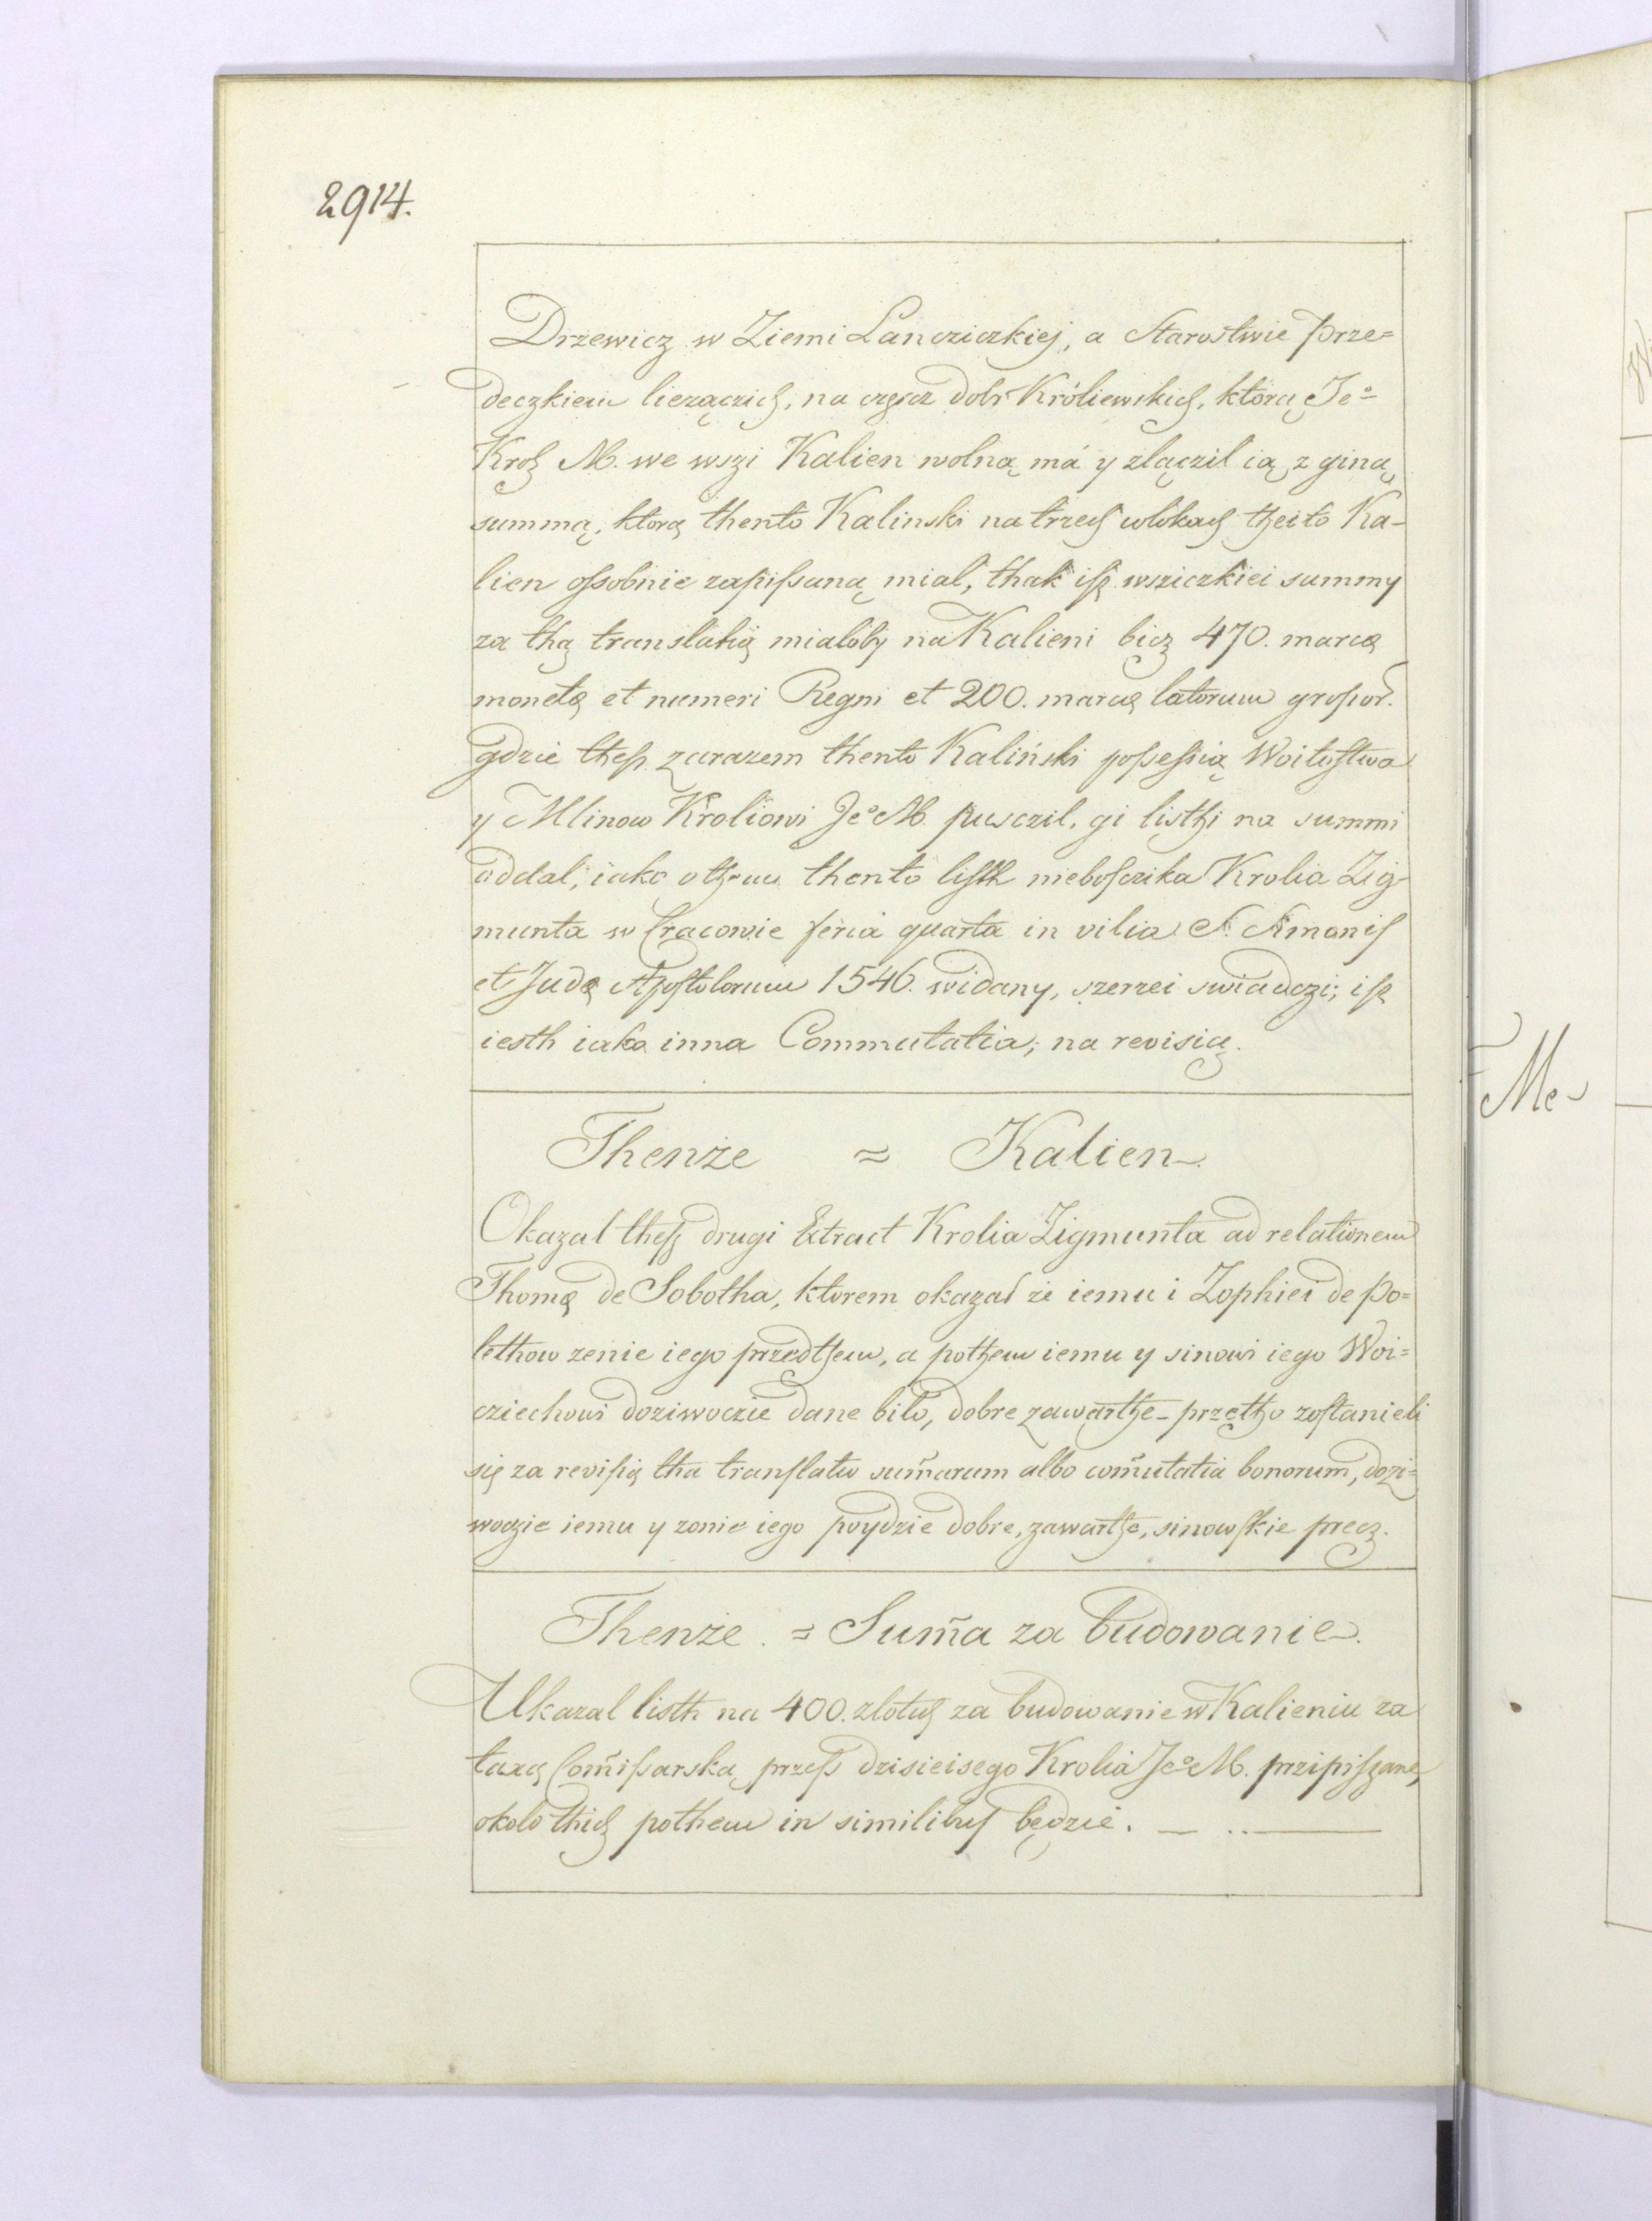 2914.
Drzewicz w Ziemi Lancziczkiej, a Starostwie Prze=
deczkiem liezączich, na częscz dobr Króliewskich, ktorą Je°
Krol M. we wszi Kalien wolną má y złączil ią z giną
summą, ktorą thento Kalinski na trzech wlokach theito Ka-
lien ossobnie zapissaną mial, thak isz wsziczkiei summy
za thą translatią mialoby na Kalieni bicz 470. marcę
monetę et numeri Regni et 200. marcę latorum grossor.
gdzie thesz zarazem thento Kaliński possessią Woitostwa
y Mlinow Kroliowi Je° M. pusczil, gi listhi na summi
oddal, iako o them thento listh nieboszczika Krolia Zig-
munta w Cracowie feria quarta in vilia S. Simonis
et Judę Apostolorum 1546. widany, szerzei swiadczi; isz
iesth iako inna Commutatia; na revisią.
Thenże = Kalien
Okazal thesz drugi Extract Krolia Zigmunta ad relationem
Thomę de Sobotha, ktorem okazał że iemu i Zophiei de Po=
lethow zenie iego przedthem, a pothem iemu y sinowi iego Woi=
cziechowi doziwoczie dane bilo, dobre zawarthe - przetho zostanieli
się za revisią tha translatio sum̃arum albo com̃utatia bonorum, dozi=
woczie iemu y zonie iego poydzie dobre, zawarthe, sinowskie precz.
Thenże = Sum̃a za budowanie.
Ukazal listh na 400. zlotych za budowanie w Kalieniu za
taxą Com̃issarską przess dzisieisego Krolia Je° M. przipiszane,
okolo thich pothem in similibus będzie.
Me